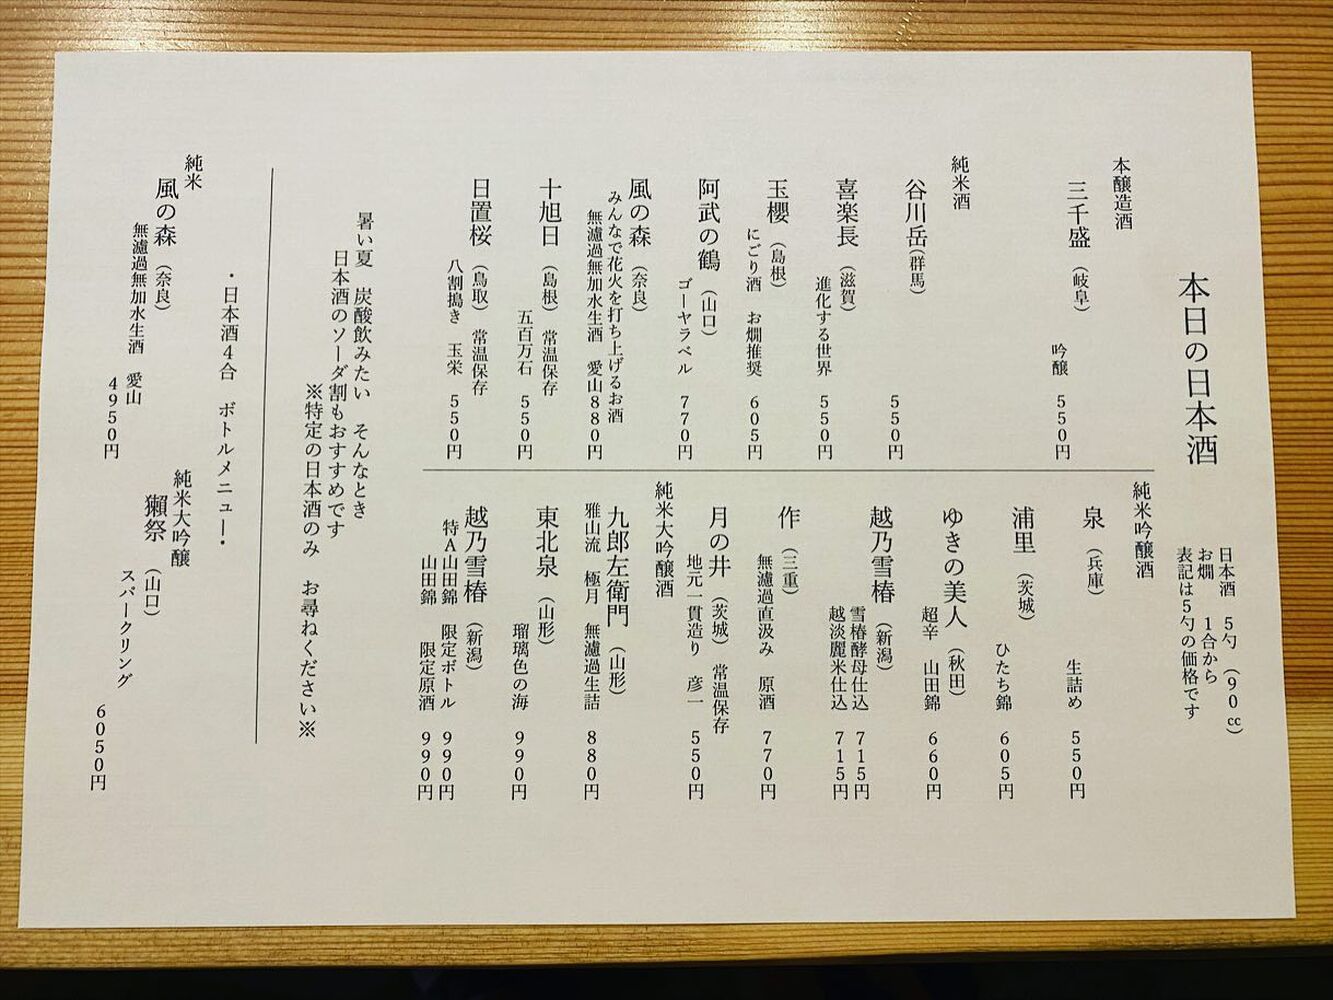 本日の日本酒
日本酒　5勺　(90㏄)
お燗　1合から
表記は5勺の価格です
本醸造酒
三千盛　(岐阜)
吟醸　550円
純米酒
谷川岳(群馬)
550円
喜楽長　(滋賀)
進化する世界　550円
玉櫻　(島根)
にごり酒　お燗推奨　605円
阿武の鶴　(山口)
ゴーヤラベル　770円
風の森　(奈良)
みんなで花火を打ち上げるお酒
無濾過無加水生酒　愛山880円
十旭日　(島根)　常温保存
五百万石　550円
日置桜　(鳥取)　常温保存
八割搗き　玉栄　550円
純米吟醸酒
泉　(兵庫)
生詰め　550円
浦里　(茨城)
ひたち錦　605円
ゆきの美人　(秋田)
超辛　山田錦　660円
越乃雪椿　(新潟)
雪椿酵母仕込　715円
越淡麗米仕込　715円
作　(三重)
無濾過直汲み　原酒　770円
月の井　(茨城)　常温保存
地元一貫造り　彦一　550円
純米大吟醸酒
九郎左衛門　(山形)
雅山流　極月　無濾過生詰　880円
東北泉　(山形)
瑠璃色の海　990円
越乃雪椿　(新潟)
特A山田錦　限定ボトル　990円
山田錦　限定原酒　990円
暑い夏　炭酸飲みたい　そんなとき
日本酒のソーダ割もおすすめです
※特定の日本酒のみ　お尋ねください※
・日本酒4合　ボトルメニュー・
純米
風の森　(奈良)
無濾過無加水生酒　愛山
4950円
純米大吟醸
獺祭　(山口)
スパークリング
6050円